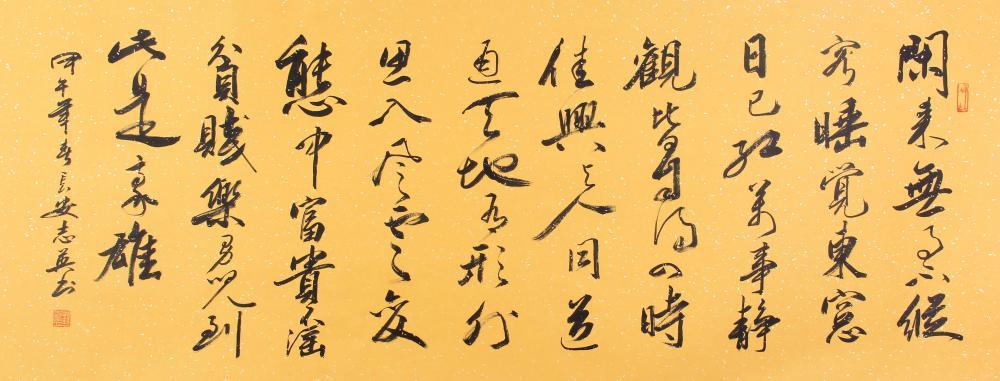 閑来無事不縱
容睡覺東窓
日已紅萬事静
觀皆自得四時
佳興与人同道
通天地有形外
思入風雲变
態中富貴滛
貧賤樂男児到
此是豪雄
甲午年春長安志英书